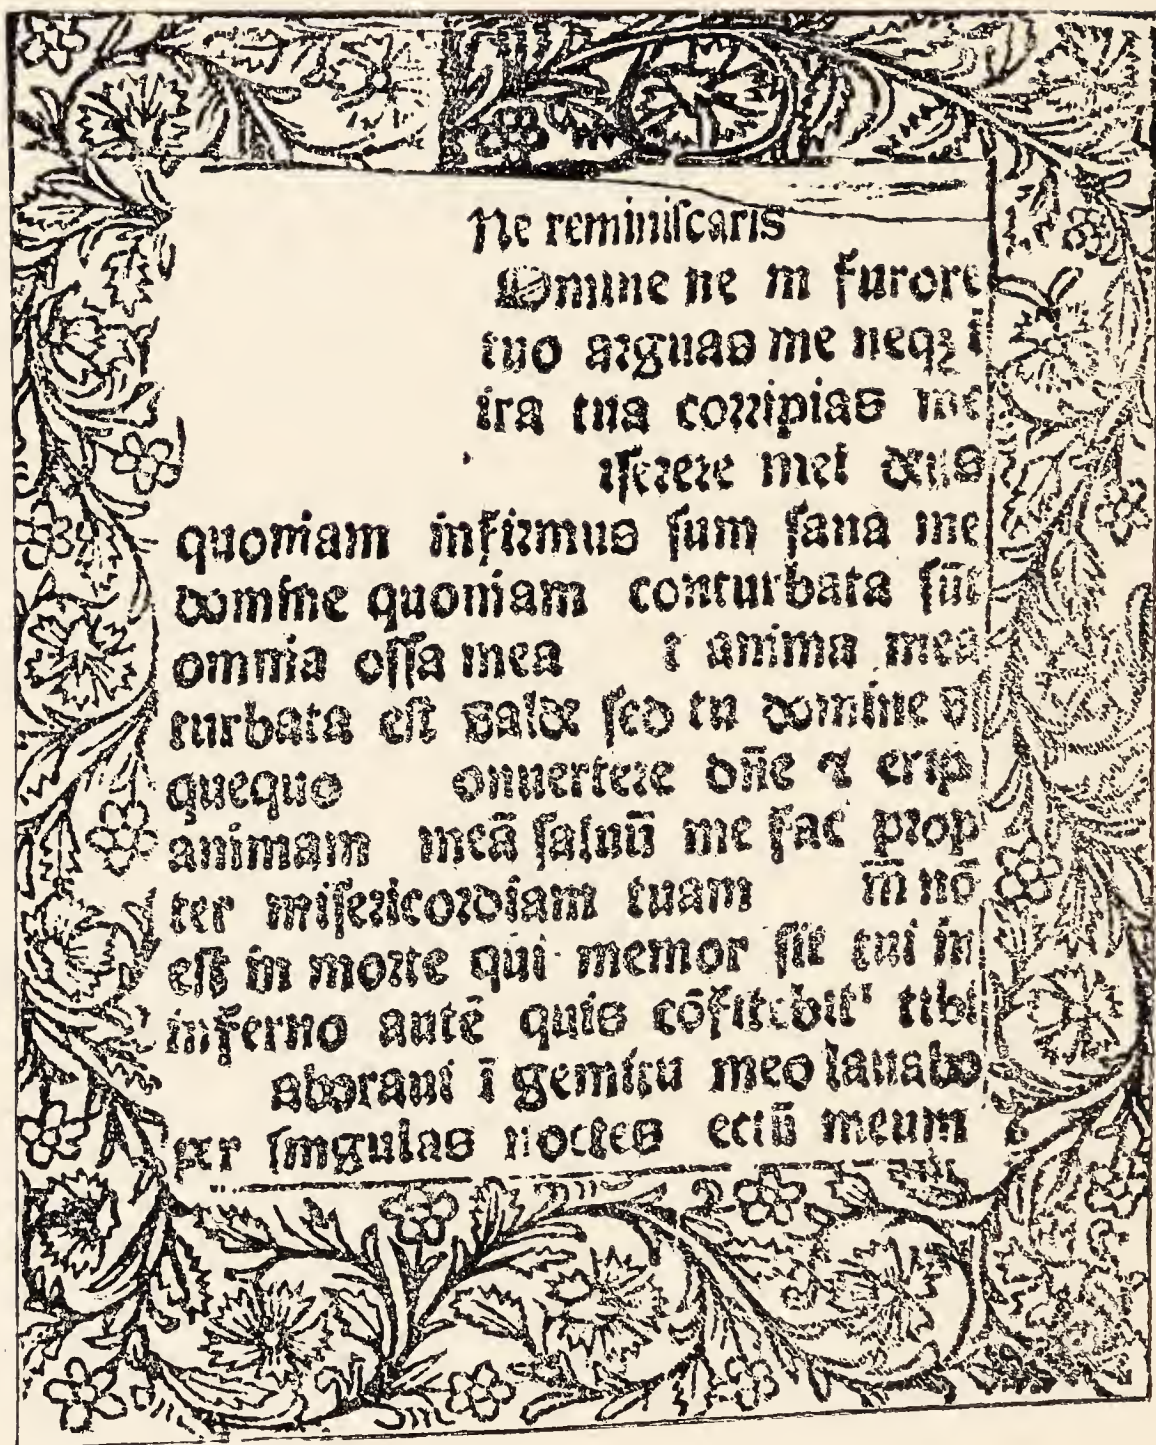 Ne reminiſcaris
Domine ne in furore
tuo arguas me neqꝫ ī
ira tua corripias me
iſerere mei deus
quoniam infirmus ſum ſana me
domine quoniam conturbata ſūt
omnia oſſa mea t anima mea
turbata eſt valde ſed tu domine v
quequo onuertere dn̄e ⁊ erip
animam meā ſaluū me fac prop
ter miſericordiam tuam m̄ nō
eſt in morte qui memor ſit tui in
inferno autē quis cōfitebit᷑ tibi
aboraui ī gemitu meo lauabo
per ſingulas noctes ectū meum